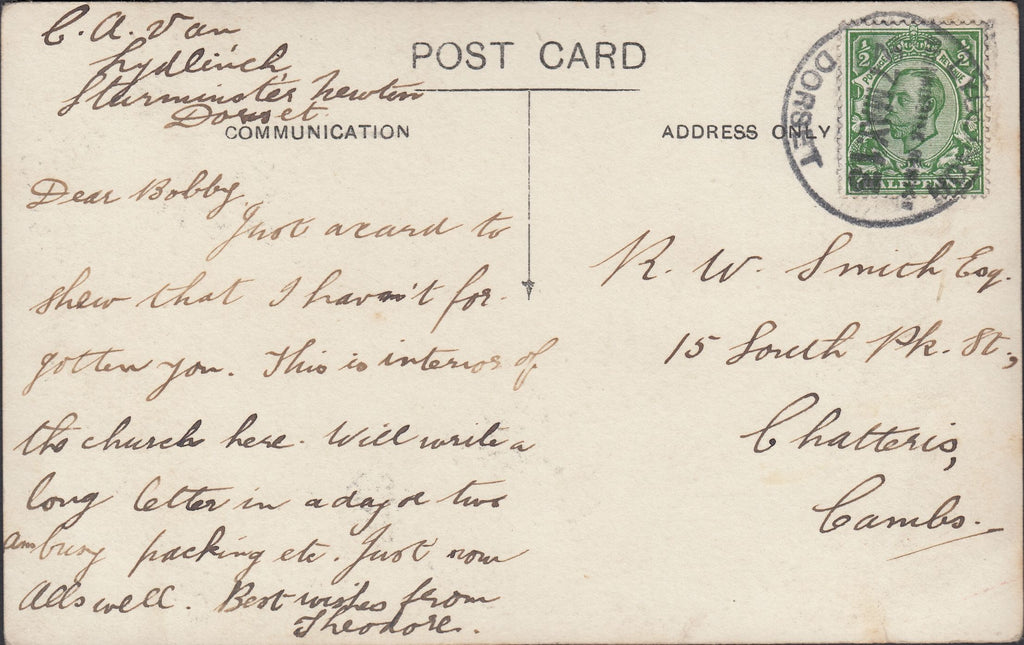 C. A. Van
Lydlinch
Sturminster Newton
Dorset
POST CARD
COMMUNICATION
ADDRESS ONLY
DORSET
MAY
12
1/2
1/2
POSTAGE
REVENUE
HALFPENNY
Dear Bobby
Just a card to
shew that I havn't for-
gotten you. This is interior of
the church here. Will write a
long letter in a day or two
am busy packing etc. Just now
Alls well. Best wishes from
Theodore.
R. W. Smith Esq.
15 South Pk. St.,
Chatteris,
Cambs.